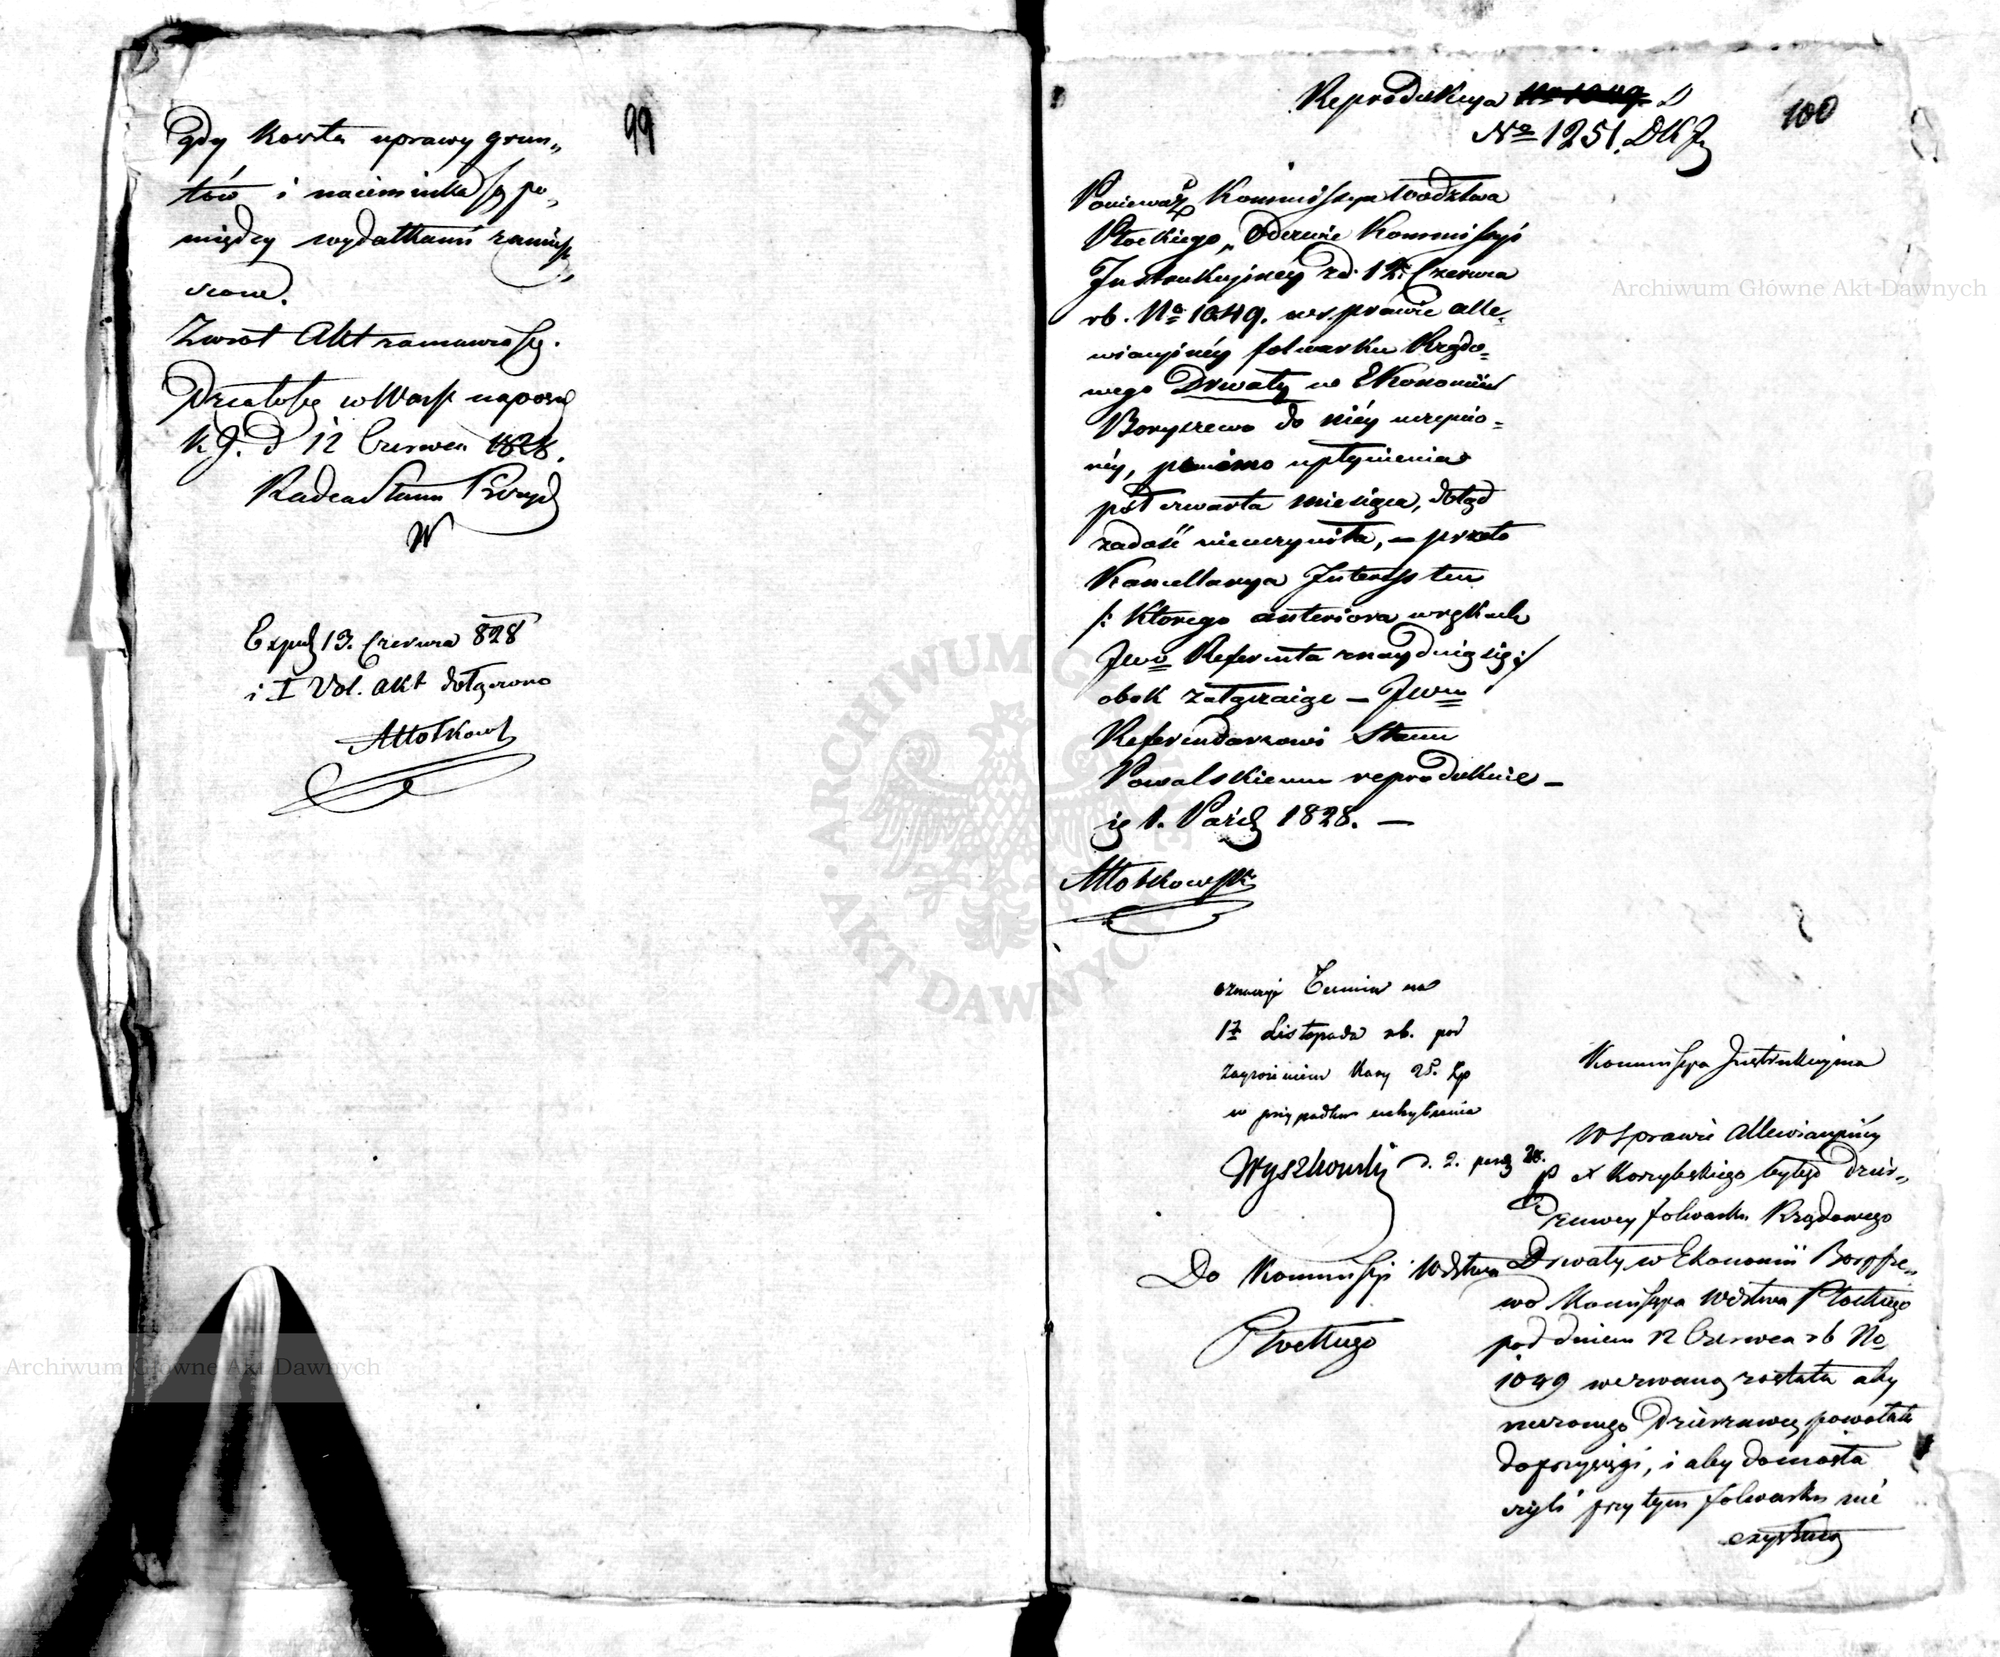 99
gdy koszta uprawy grun„
tów i nasienia są po„
między wydatkami zamiesz„
czone.
Zwrot Akt zamawia się.
Działo się w Warsz na posie
K J. d 12 Czerwca 1828.
Radca Stanu
W
Exped 13. Czerwca 828
i I Vol. akt dołączono
Młotkows
100
Reprodukcya No 1049. D
No 1251. DKJ
Ponieważ Kommissya Wodztwa
Płockiego, Odezwie Kommissyi
Instrukcyinéy z d. 12. Czerwca
rb. No 1049. w sprawie alle„
wiacyinéy folwarku Rządo„
wego Drwały w Ekonomii
Boryszewo do niéy uczynio„
néy, pomimo upłynienia
pół czwarta miesiąca, dotąd
zadość nieuczyniła, — przeto
Kancellarya Interess ten
/: którego anteriora w rękach
JWo Referenta znayduią się :/
obok załączaiąc — JWmu
Referendarzowi Stanu
Powalskiemu reprodukuie —
ię 1. Paźdz 1828. —
Młotkowski
oznaczyć Termin na
17 Listopada rb. pod
zagrożeniem Kary 25. Zp
w przypadku uchybienia
Wyszkowski d. 2. paźdz 28.
Do Kommissyi Wdztwa
Płockiego
Kommissya Instrukcyina
W sprawie Allewiacyinéy
P Korzybskiego byłego Dzier„
żawcy folwarku Rządowego
Drwały w Ekonomii Borysze„
wo Komissya Wdztwa Płockiego
pod dniem 12 Czerwca rb No
1049 wezwaną została aby
rzeczonego Dzierżawcę powołała
do przysięgi, i aby doniosła
czyli przy tym folwarku nie